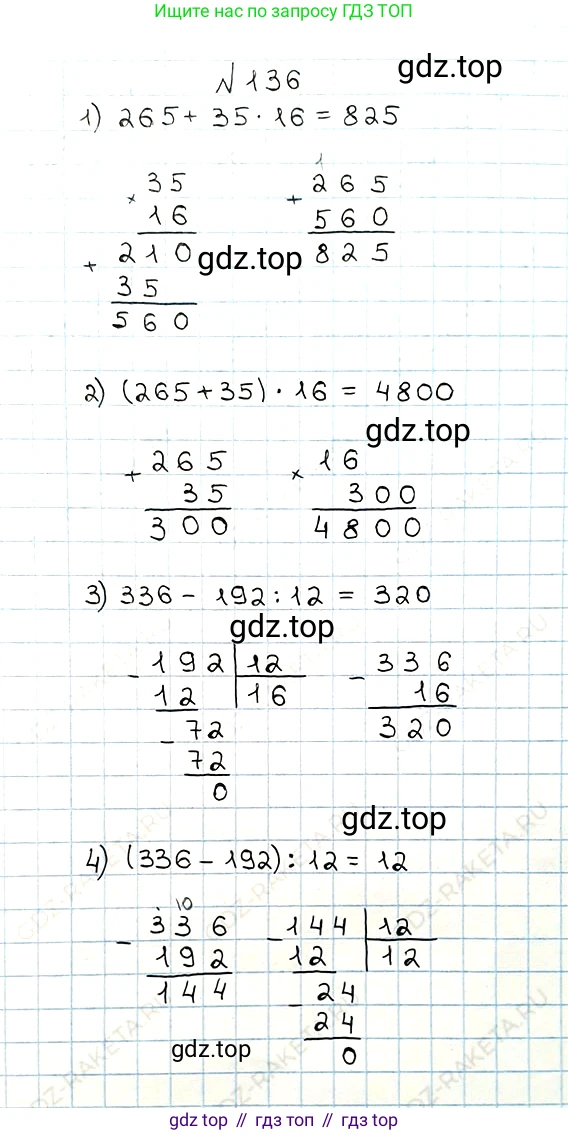 Ищите нас по запросу ГДЗ ТОП
№ 136
gdz.top
1) 265 + 35 · 16 = 825
× 35
16
+ 210
35
560
+ 1
265
560
825
gdz.top
2) (265 + 35) · 16 = 4800
gdz.top
+ 265
35
300
× 16
300
4800
3) 336 - 192 : 12 = 320
gdz.top
- 192 | 12
12 | 16
- 72
72
0
- 336
16
320
gdz.top
4) (336 - 192) : 12 = 12
10
- 336
192
144
- 144 | 12
12 | 12
- 24
24
0
gdz.top
GDZ-RAKETA.RU
gdz top // гдз топ // gdz top // гдз топ